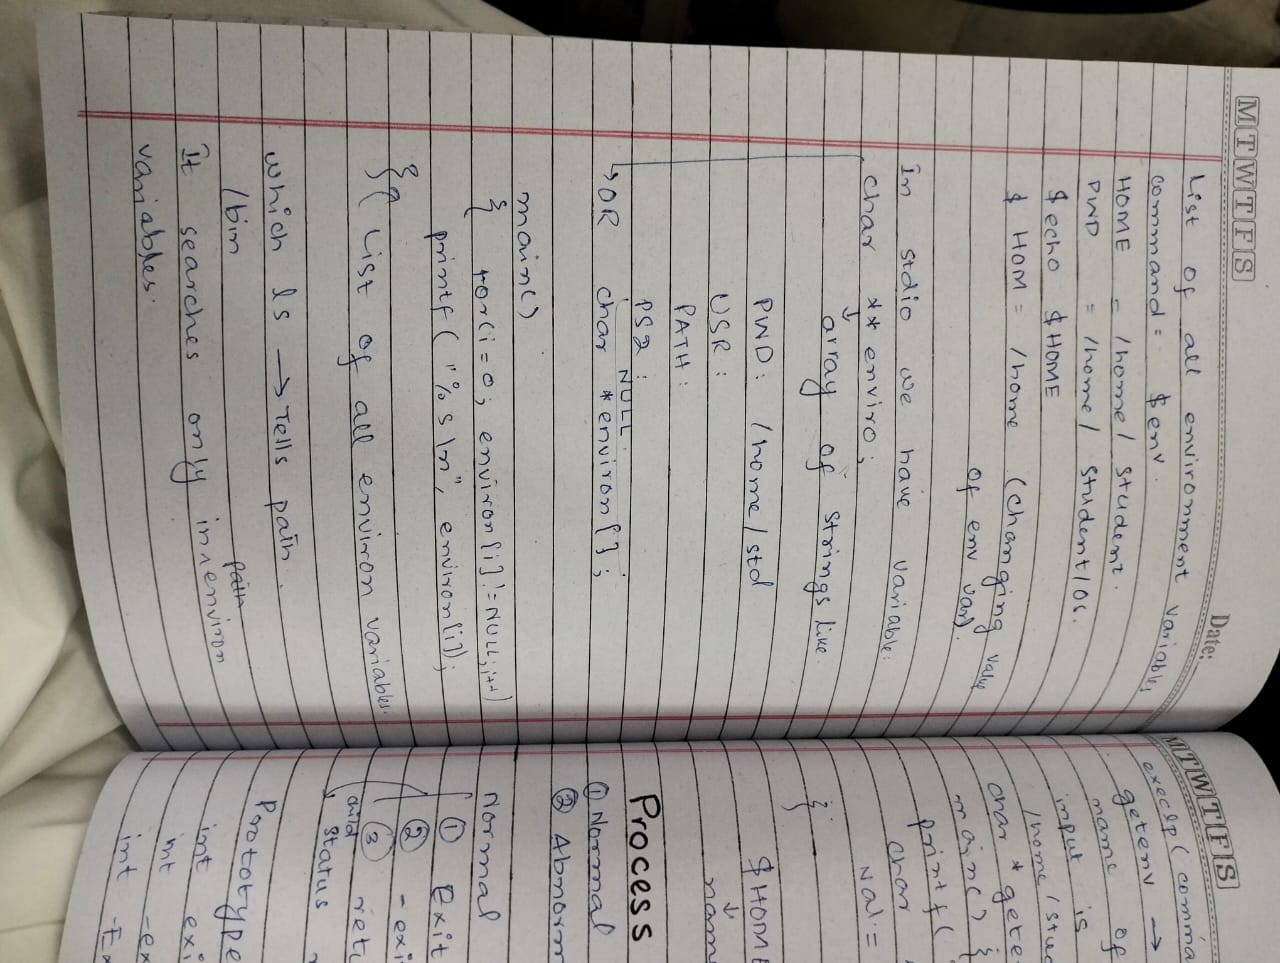 MTWTFS
Date:
List of all environment variables
command: $env.
HOME = /home/student.
PWD = /home/student/os.
$echo $HOME
$ HOM = /home (changing value
of env var).
In stdio we have variable:
char **enviro;
array of strings like.
PWD: /home/std
USR:
PATH:
PS2:
NULL.
OR char *environ[];
main()
{ for(i=0; environ[i]!=NULL; i++)
printf("%s\n", environ[i]);
}
(List of all environ variables.
which ls → Tells path.
/bin
path
It searches only in environ
variables.
MTWTFS
execlp(comma
getenv →
name of
input is
/home/stu
char *gete
main() {
printf(
char
val =
}
$HOME
nam
Process
① Normal
② Abnorm
Normal
① Exit
② -exi
③ retu
child
status
Prototype
int exi
int -ex
int -Ex